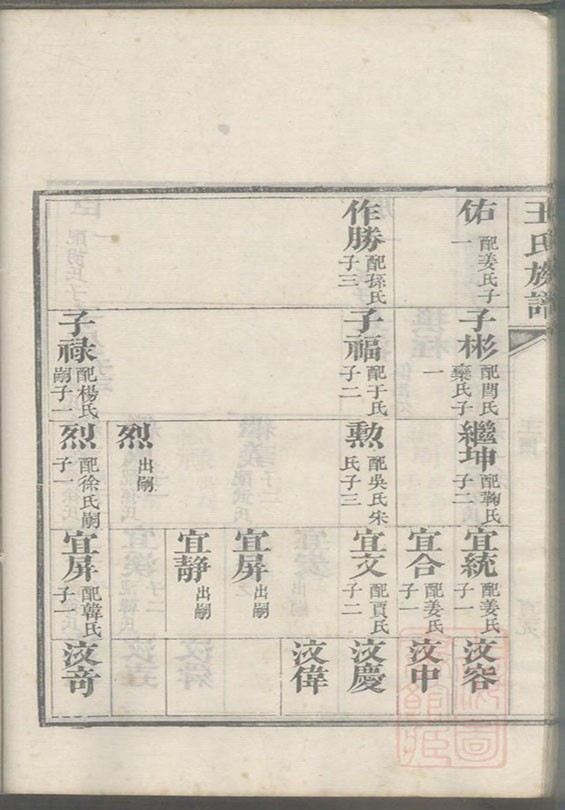 王氏族譜
佑 配姜氏子一
作勝 配孫氏子三
子彬 配閆氏棄氏子一
子福 配于氏子二
子祿 配楊氏嗣子一
繼坤 配鞠氏子二
勲 配吳氏宋氏子三
烈 出嗣
烈 配徐氏嗣子一
宜統 配姜氏子一
宜合 配姜氏子一
宜文 配賈氏子二
宜屏 出嗣
宜靜 出嗣
宜屏 配韓氏子一
汶容
汶中
汶慶
汶偉
汶奇